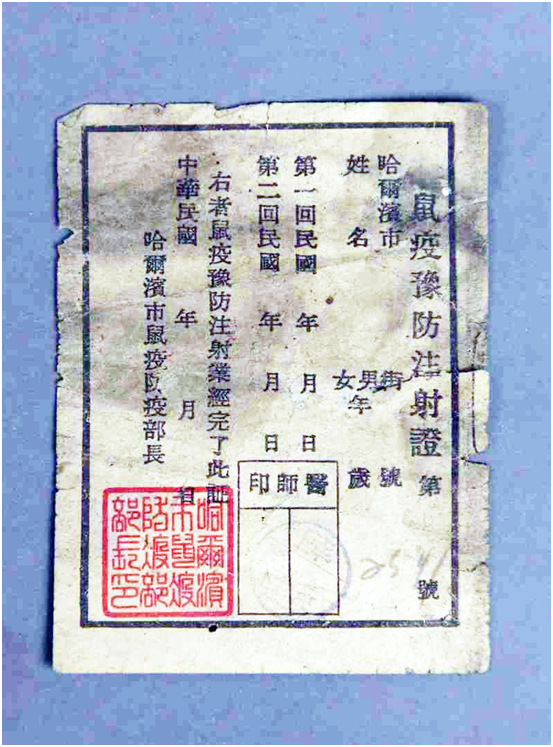 鼠疫豫防注射證 第 號
哈爾濱市 街 號
姓名 男女 年 歲
第一回民國 年 月 日
第二回民國 年 月 日
右者鼠疫豫防注射業經完了此證
中華民國 年 月 日
哈爾濱市鼠疫防疫部長
醫師印
哈爾濱
市鼠疫
防疫部
部長印